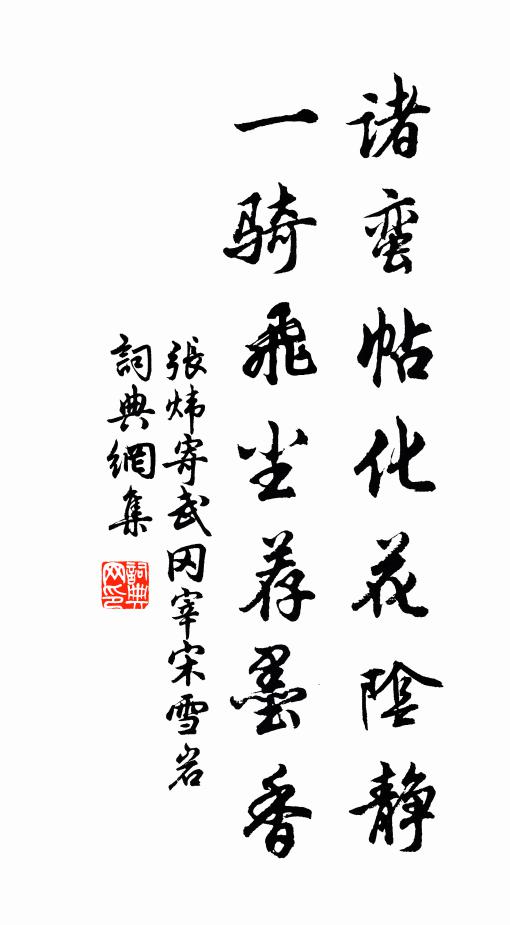 诸蛮帖化花阴静
一骑飞尘荐墨香
張炜寄武冈宰宋雪岩
詞典網集
詞典网印